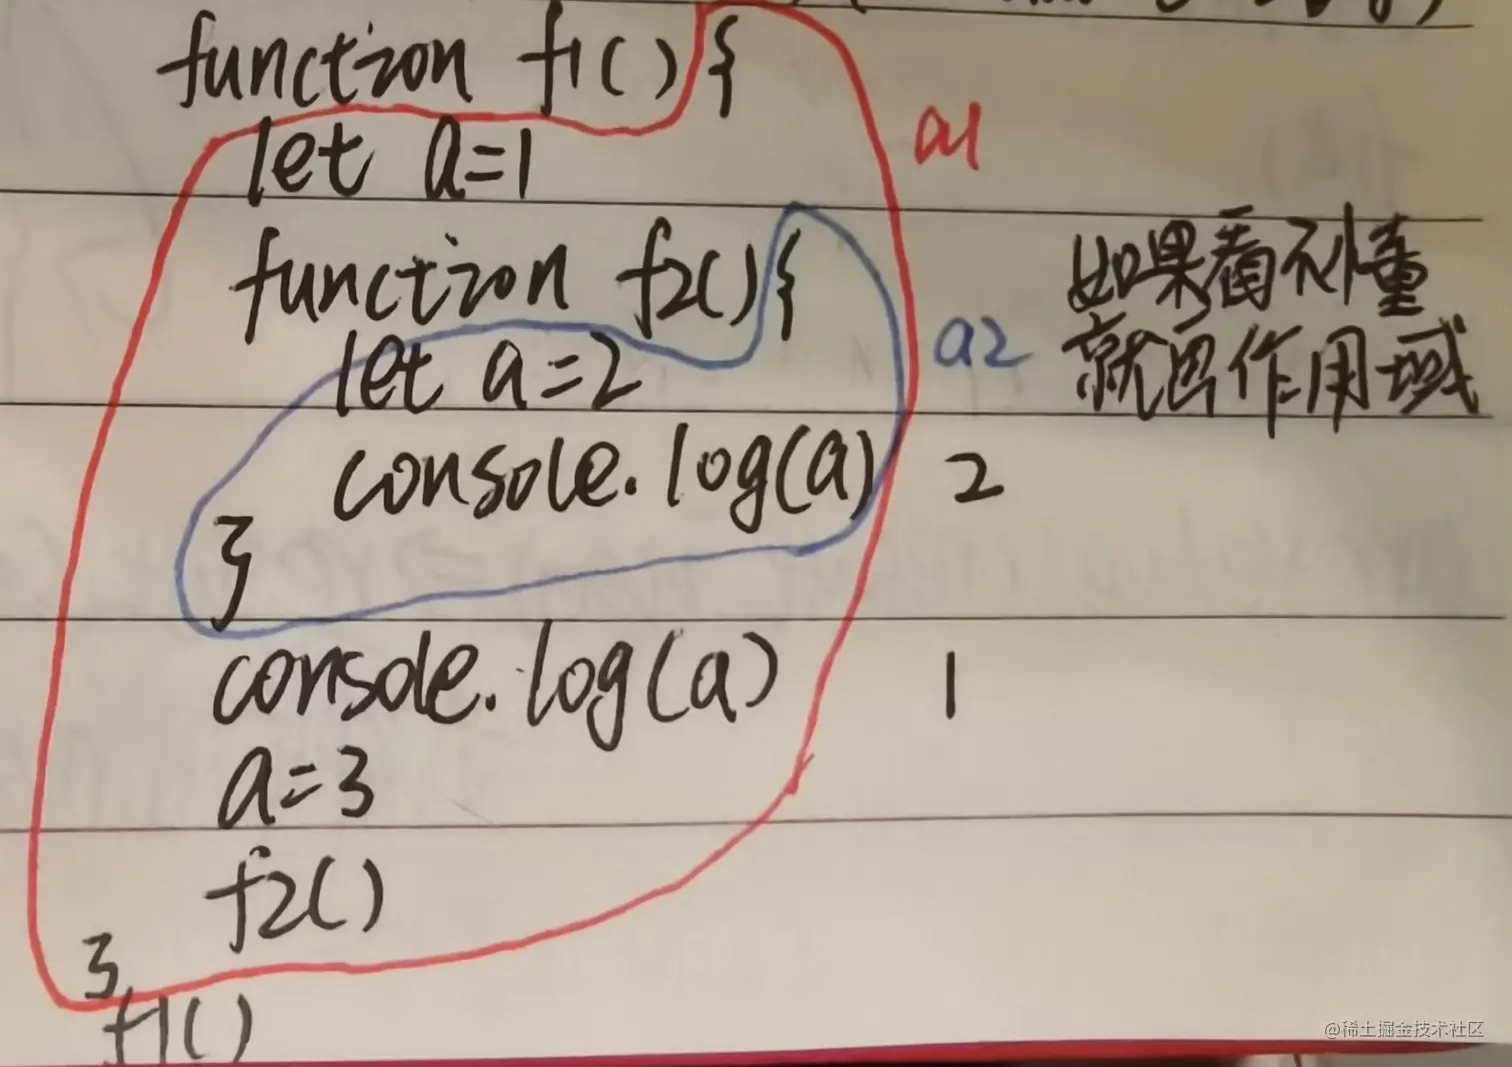 function f1() {
a1
let a=1
function f2() {
如果看不懂
let a=2
a2
就画作用域
console.log(a)
2
}
console.log(a)
1
a=3
f2()
}
f1()
@稀土掘金技术社区